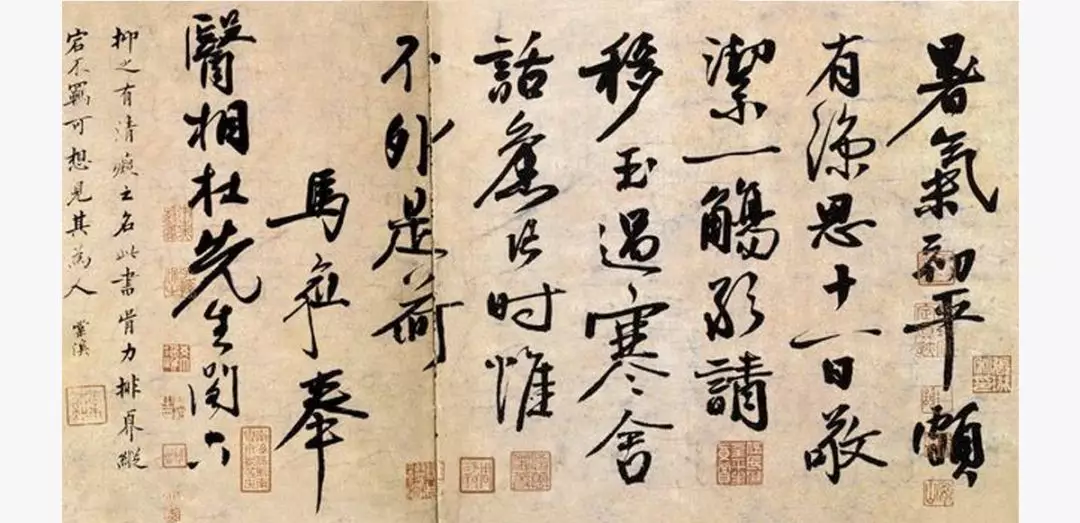 暑氣初平頗
有涼思十一日敬
潔一觴敢請
移玉過寒舍
話舊片时惟
不外是荷
馬愈奉
醫相杜先生閣下
抑之有清癡之名此書骨力排奡縱
宕不羈可想見其為人